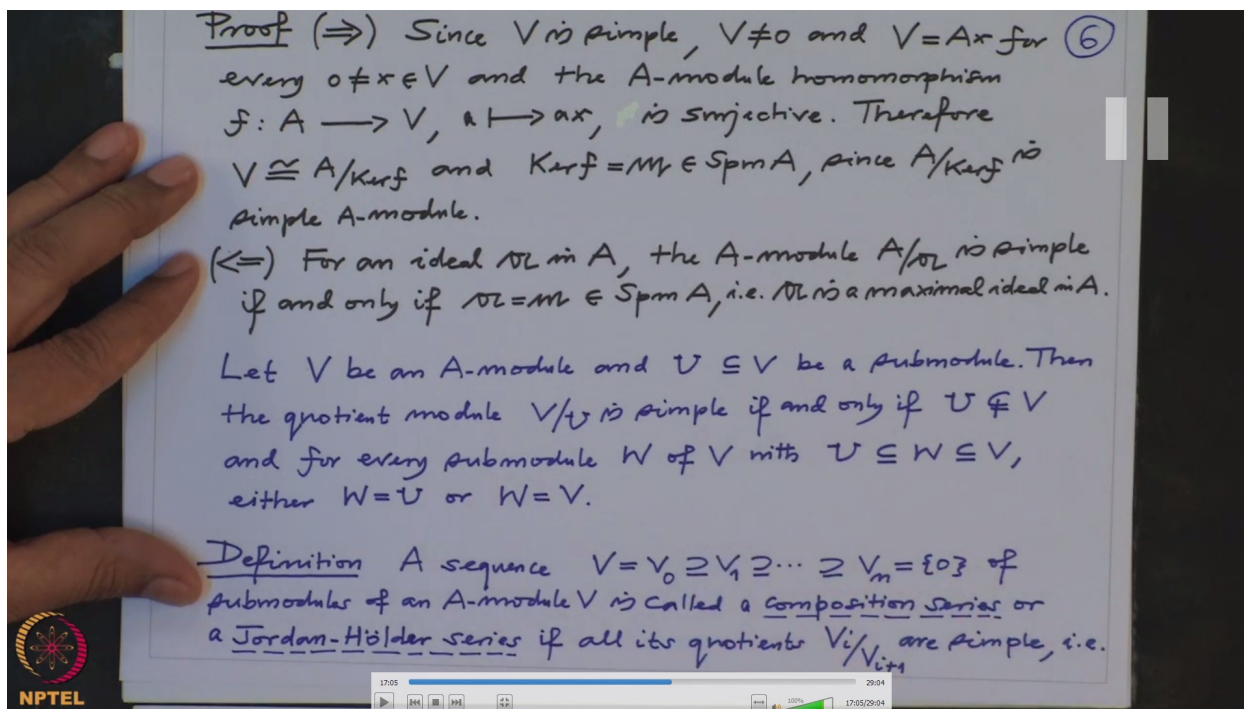 Proof (⇒) Since V is simple, V≠0 and V=Ax for ⑥
every 0≠x∈V and the A-module homomorphism
f: A ⟶ V, a ↦ ax, is surjective. Therefore
V ≅ A/Kerf and Kerf = 𝔪 ∈ SpmA, since A/Kerf is
simple A-module.
(<=) For an ideal 𝔞 in A, the A-module A/𝔞 is simple
if and only if 𝔞=𝔪 ∈ SpmA, i.e. 𝔞 is a maximal ideal in A.
Let V be an A-module and U ⊆ V be a submodule. Then
the quotient module V/U is simple if and only if U ⊊ V
and for every submodule W of V with U ⊆ W ⊆ V,
either W=U or W=V.
Definition A sequence V=V₀⊇V₁⊇⋯⊇Vₙ={0} of
submodules of an A-module V is called a composition series or
a Jordan-Hölder series if all its quotients Vi/Vi+1 are simple, i.e.
NPTEL
17:05 29:04
100% 17:05/29:04